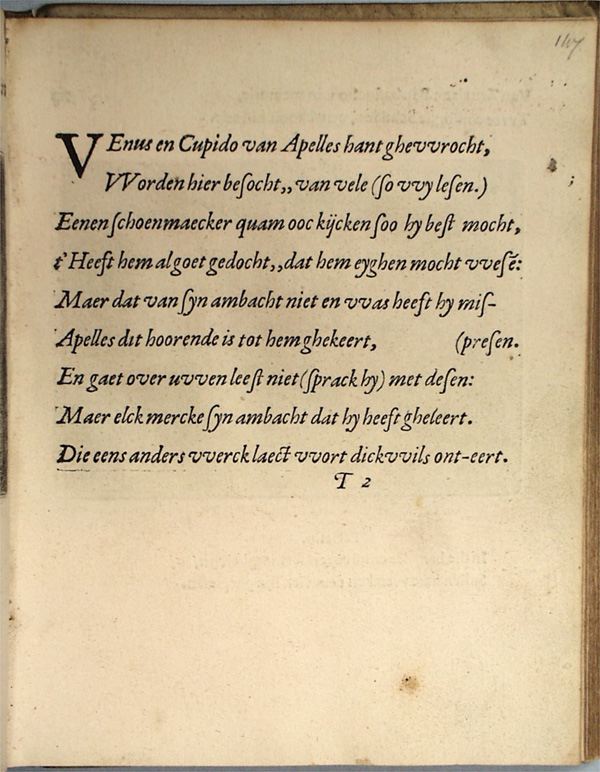 147
VEnus en Cupido van Apelles hant ghevvrocht,
VVorden hier besocht,, van vele (so vvy lesen.)
Eenen schoenmaecker quam ooc kijcken soo hy best mocht,
t'Heeft hem al goet gedocht,, dat hem eyghen mocht vvesē:
Maer dat van syn ambacht niet en vvas heeft hy mis-
Apelles dit hoorende is tot hem ghekeert, (presen.
En gaet over uvven leest niet (sprack hy) met desen:
Maer elck mercke syn ambacht dat hy heeft gheleert.
Die eens anders vverck laect vvort dickvvils ont-eert.
T 2